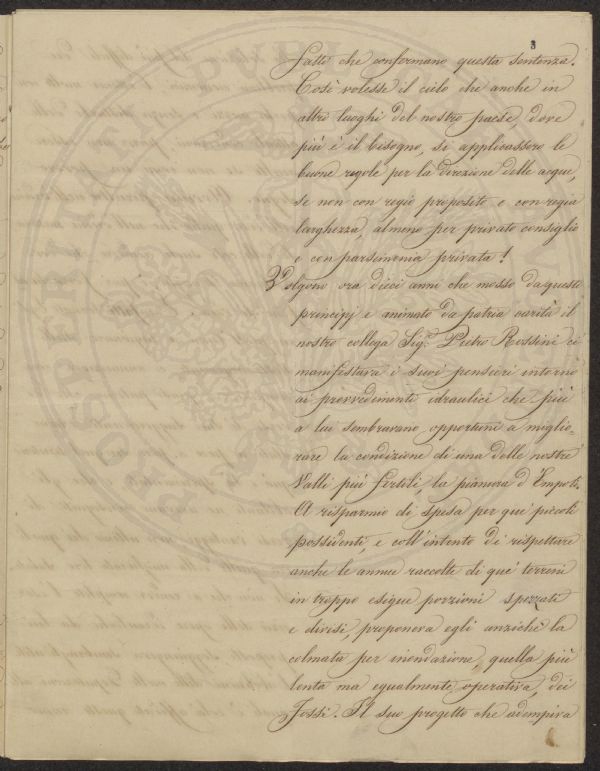 3
fatti che confermano questa sentenza.
Così volesse il cielo che anche in
altri luoghi del nostro paese, dove
più è il bisogno, si applicassero le
buone regole per la direzione delle acque,
se non con regio proposito e con regia
larghezza, almeno per privato consiglio
e con parsimonia privata!
Volgono ora dieci anni che mosso da questi
principj e animato da patria carità il
nostro collega Sigr. Pietro Rossini ci
manifestava i suoi pensieri intorno
ai provvedimenti idraulici che più
a lui sembravano opportuni a miglio-
rare la condizione di una delle nostre
Valli più fertili, la pianura d'Empoli.
A risparmio di spesa per que' piccoli
possidenti, e coll'intento di rispettare
anche le annue raccolte di que' terreni
in troppo esigue porzioni spezzati
e divisi, proponeva egli anzichè la
colmata per inondazione, quella più
lenta ma egualmente operativa, dei
Fossi. Il suo progetto che adempiva
PROSPERITATI PUBLICAE